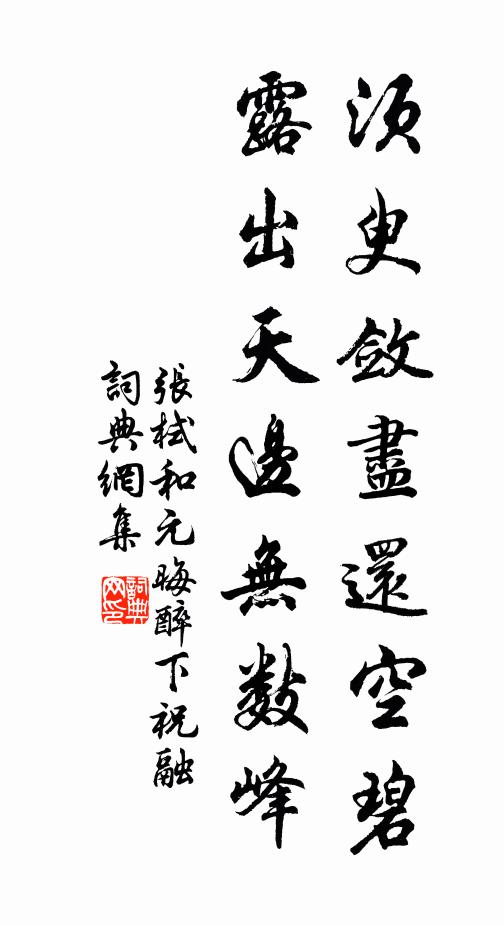 須臾斂盡還空碧
露出天邊無數峰
張栻和元晦醉下祝融
詞典網集